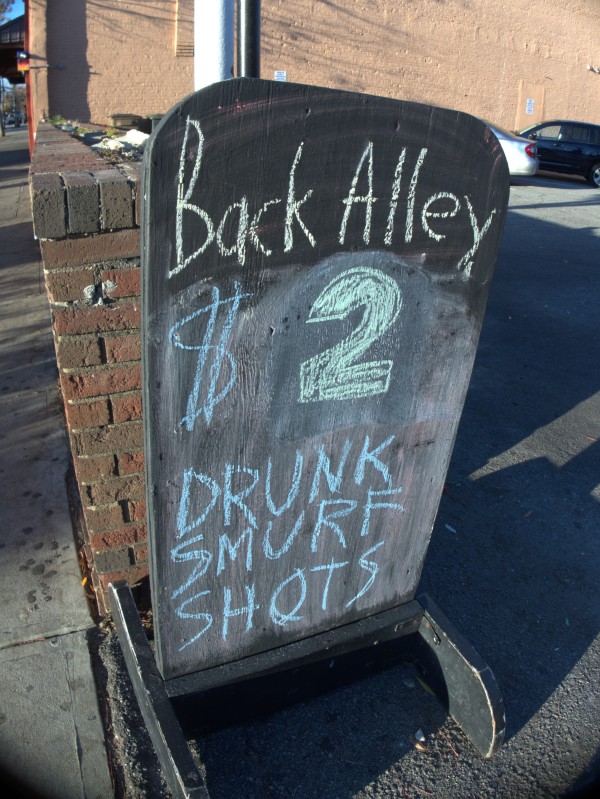 Back Alley
$ 2
DRUNK
SMURF
SHOTS